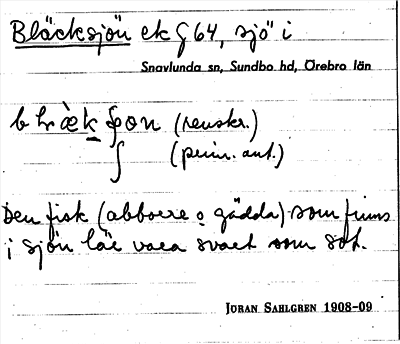 Bläcksjön ek G 64, sjö i
Snavlunda sn, Sundbo hd, Örebro län
(renskr.)
(prim. ant.)
Den fisk (abborre o gädda) som finns
i sjön lär vara svart som sot.
JÖRAN SAHLGREN 1908-09